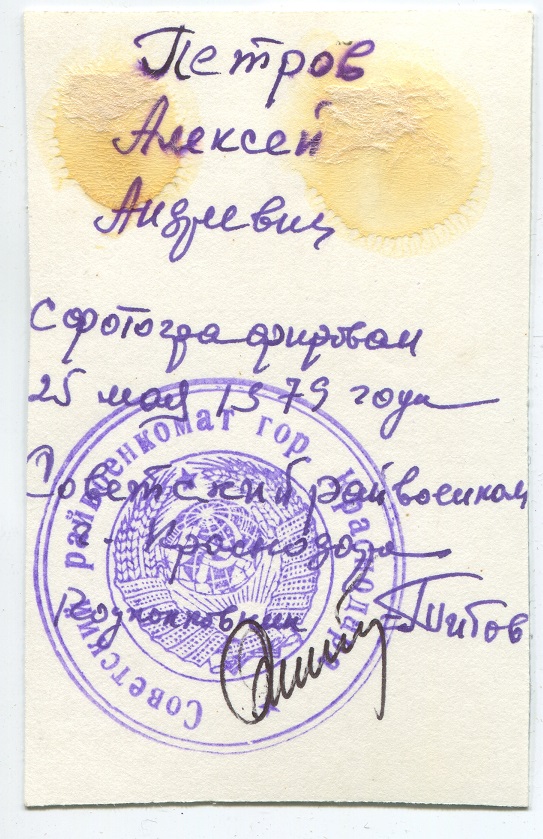 Петров
Алексей
Андреевич
Сфотографирован
25 мая 1979 года
Советский райвоенком
г. Краснодара
подполковник Титов
Советский райвоенкомат гор. Краснодара